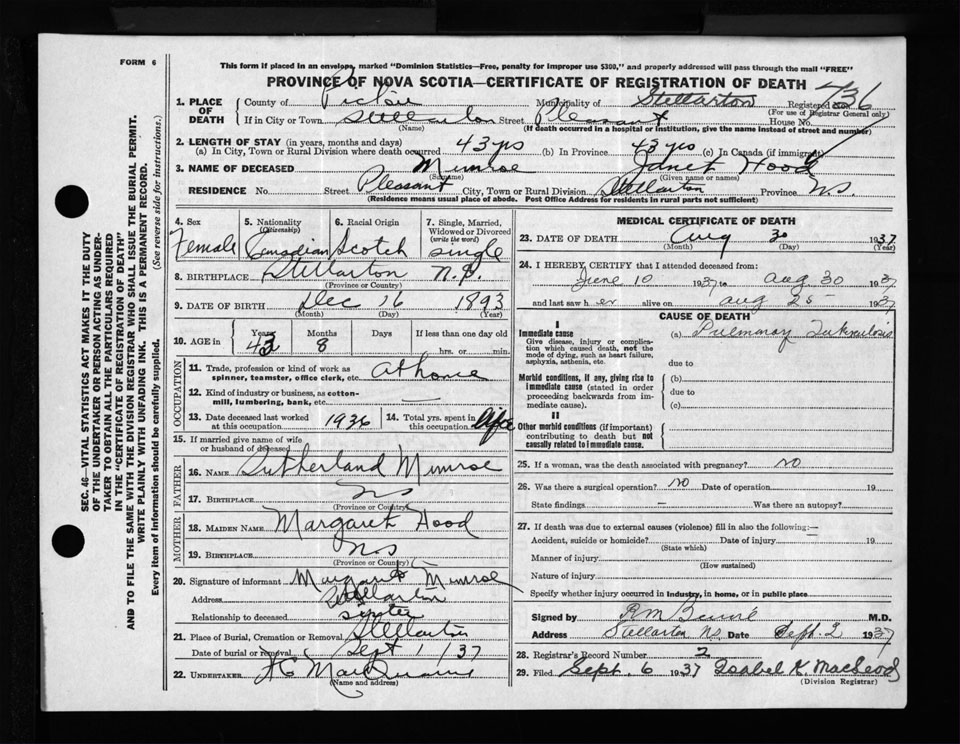 FORM 6
This form if placed in an envelope, marked "Dominion Statistics—Free, penalty for improper use $300," and properly addressed will pass through the mail "FREE"
PROVINCE OF NOVA SCOTIA—CERTIFICATE OF REGISTRATION OF DEATH
1. PLACE OF DEATH County of Pictou Municipality of Stellarton Registered No. 436
(For use of Registrar General only)
If in City or Town Stellarton Street Pleasant House No.
(Name) (If death occurred in a hospital or institution, give the name instead of street and number)
2. LENGTH OF STAY (in years, months and days)
(a) In City, Town or Rural Division where death occurred 43 yrs (b) In Province 43 yrs (c) In Canada (if immigrant)
3. NAME OF DECEASED Munroe Janet Hood
(Surname) (Given name or names)
RESIDENCE No. Street Pleasant City, Town or Rural Division Stellarton Province N.S.
(Residence means usual place of abode. Post Office Address for residents in rural parts not sufficient)
4. Sex Female
5. Nationality (Citizenship) Canadian
6. Racial Origin Scotch
7. Single, Married, Widowed or Divorced (write the word) single
8. BIRTHPLACE Stellarton N.S.
(Province or Country)
9. DATE OF BIRTH Dec 16 1893
(Month) (Day) (Year)
10. AGE in Years 43 Months 8 Days If less than one day old
hrs. or min.
OCCUPATION
11. Trade, profession or kind of work as spinner, teamster, office clerk, etc. at home
12. Kind of industry or business, as cotton-mill, lumbering, bank, etc. —
13. Date deceased last worked at this occupation 1936
14. Total yrs. spent in this occupation life
15. If married give name of wife or husband of deceased
FATHER
16. NAME Sutherland Munroe
17. BIRTHPLACE N S
(Province or Country)
MOTHER
18. MAIDEN NAME Margaret Hood
19. BIRTHPLACE N.S
(Province or Country)
20. Signature of informant Margaret Munroe
Address Stellarton
Relationship to deceased sister
21. Place of Burial, Cremation or Removal Stellarton
Date of burial or removal Sept 1 / 37
22. UNDERTAKER
(Name and address)
MEDICAL CERTIFICATE OF DEATH
23. DATE OF DEATH Aug 30 1937
(Month) (Day) (Year)
24. I HEREBY CERTIFY that I attended deceased from:
June 10 1937 to Aug 30 1937
and last saw her alive on Aug 25 1937
CAUSE OF DEATH
I
Immediate cause (a) Pulmonary Tuberculosis
Give disease, injury or complication which caused death, not the mode of dying, such as heart failure, asphyxia, asthenia, etc. due to
Morbid conditions, if any, giving rise to immediate cause (stated in order proceeding backwards from immediate cause). (b)
due to
(c)
II
Other morbid conditions (if important) contributing to death but not causally related to immediate cause.
25. If a woman, was the death associated with pregnancy? no
26. Was there a surgical operation? no Date of operation 19
State findings — Was there an autopsy?
27. If death was due to external causes (violence) fill in also the following:—
Accident, suicide or homicide? Date of injury 19
(State which)
Manner of injury
(How sustained)
Nature of injury
Specify whether injury occurred in industry, in home, or in public place
Signed by M.D.
Address Stellarton N.S. Date Sept. 2 1937
28. Registrar's Record Number 2
29. Filed Sept. 6 1937 Isabel K. MacLeod
(Division Registrar)
SEC. 46—VITAL STATISTICS ACT MAKES IT THE DUTY
OF THE UNDERTAKER OR PERSON ACTING AS UNDER-
TAKER TO OBTAIN ALL THE PARTICULARS REQUIRED
IN THE "CERTIFICATE OF REGISTRATION OF DEATH"
AND TO FILE THE SAME WITH THE DIVISION REGISTRAR WHO SHALL ISSUE THE BURIAL PERMIT.
WRITE PLAINLY WITH UNFADING INK. THIS IS A PERMANENT RECORD.
Every item of Information should be carefully supplied. (See reverse side for instructions.)